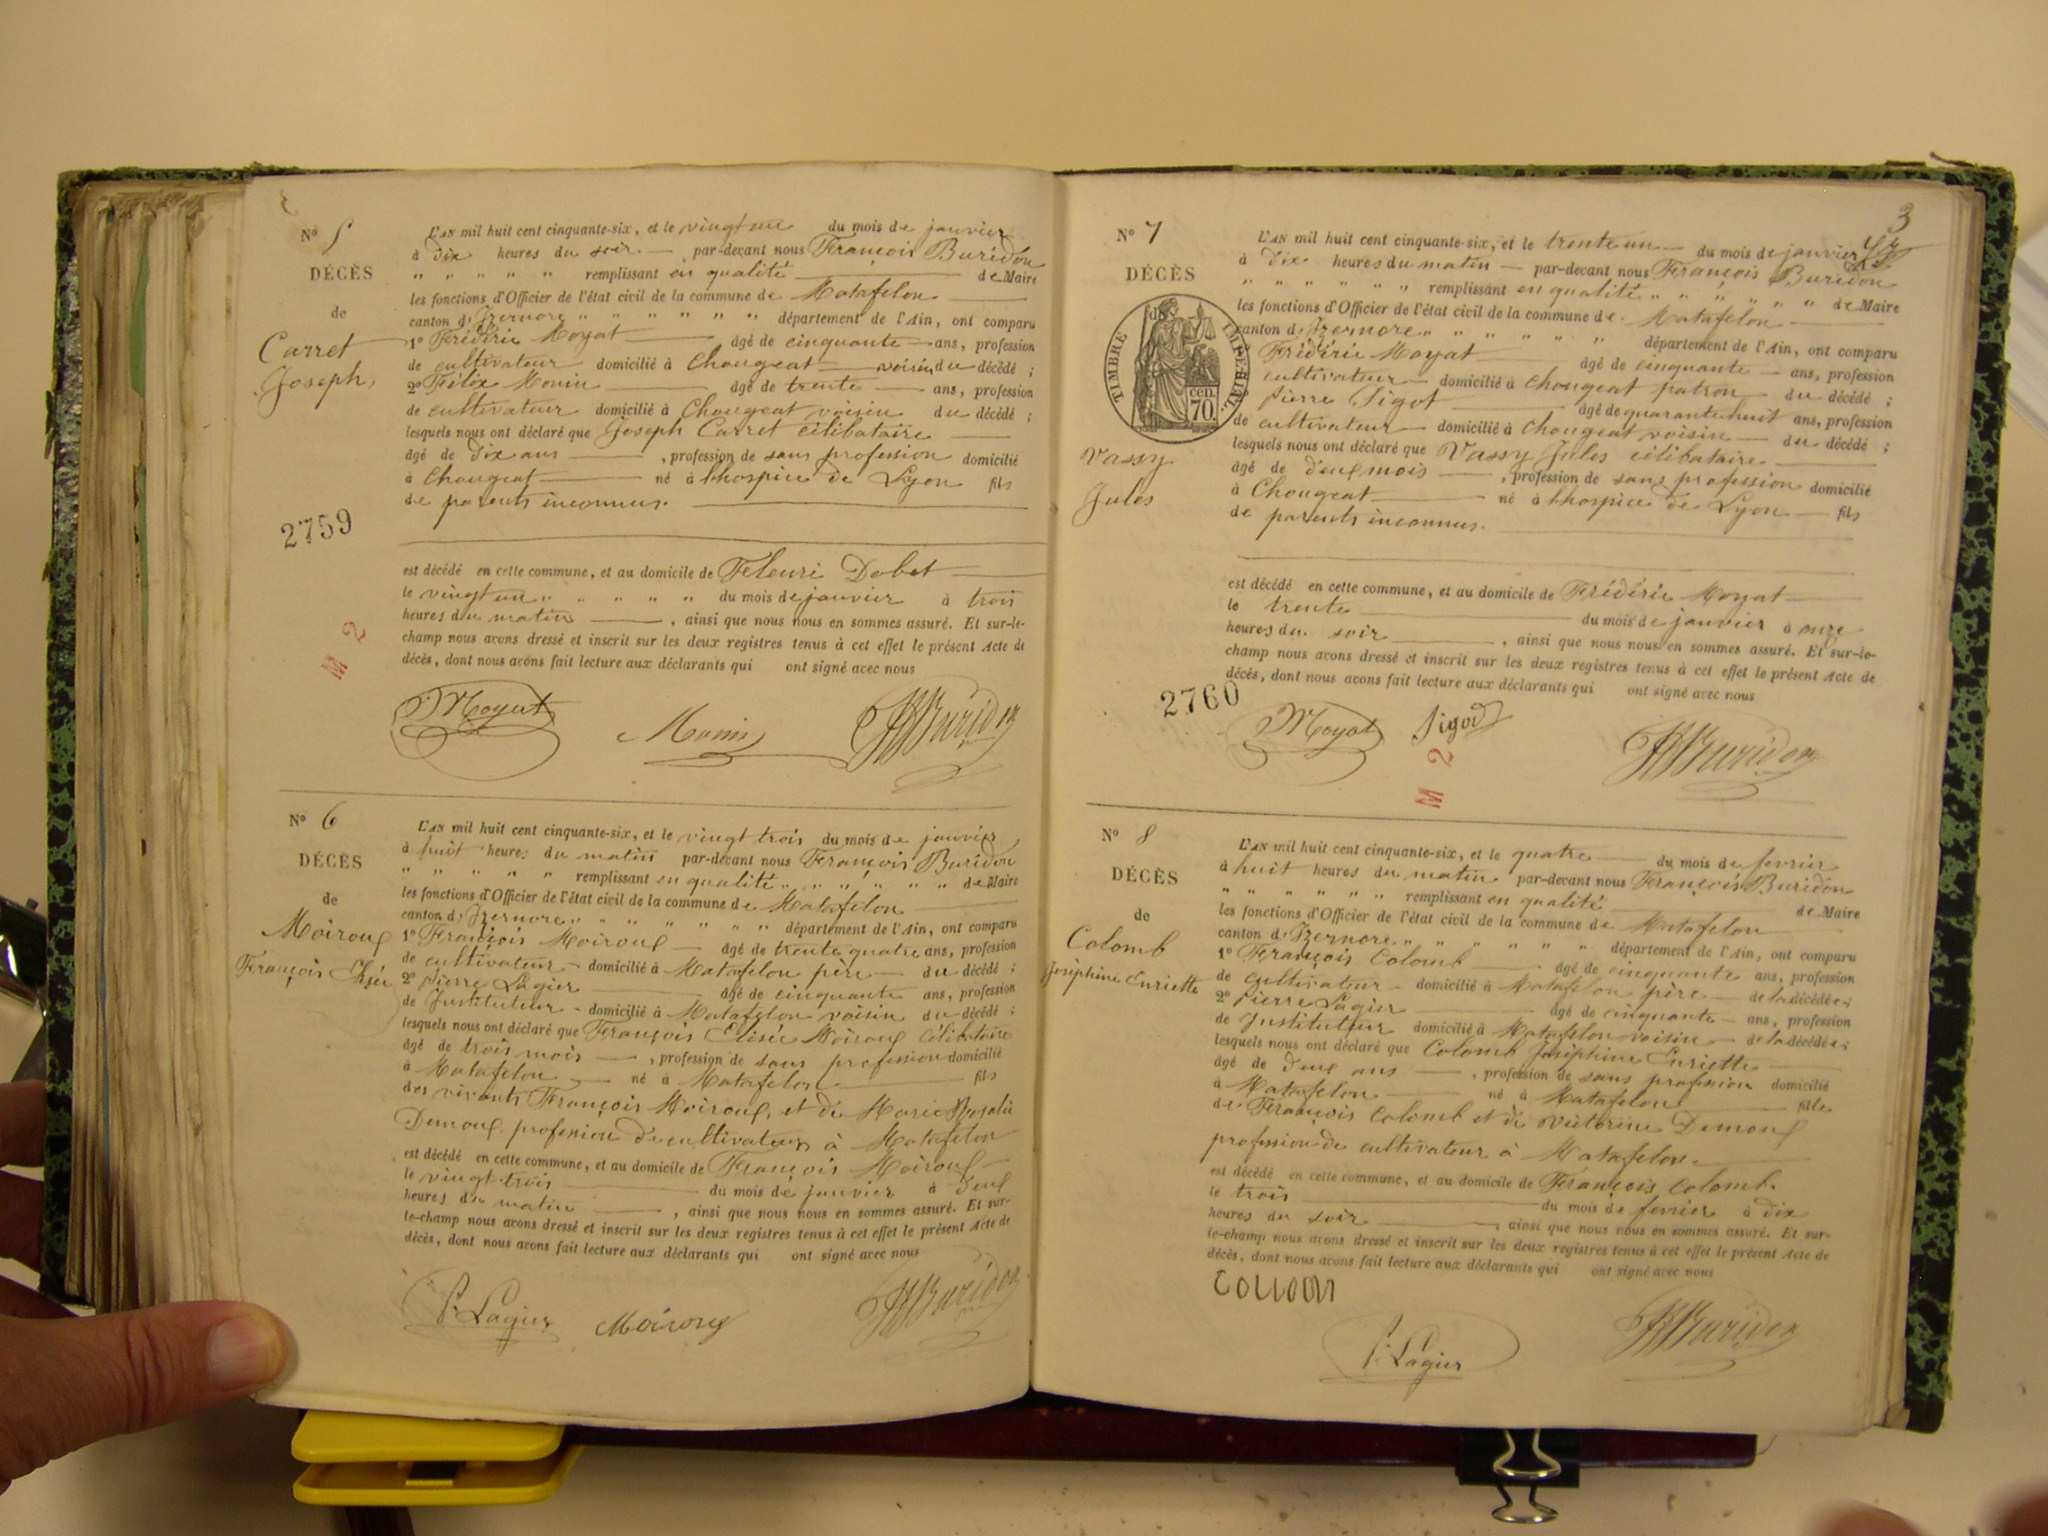 Nº 5
DÉCÈS
de
Carret
Joseph,
2759
M 2
L'AN mil huit cent cinquante-six, et le vingt un du mois de janvier
à dix heures du soir par-devant nous François Buridon
" " " " " remplissant en qualité de Maire
les fonctions d'Officier de l'état civil de la commune de Matafelon
canton d'Izernore " " " " " " département de l'Ain, ont comparu
1º Frédéric Moyat âgé de cinquante ans, profession
de cultivateur domicilié à Chougeat voisin du décédé ;
2º Félix Monin âgé de trente ans, profession
de cultivateur domicilié à Chougeat voisin du décédé ;
lesquels nous ont déclaré que Joseph Carret célibataire
âgé de dix ans , profession de sans profession domicilié
à Chougeat né à l'hospice de Lyon fils
de parents inconnus.
est décédé en cette commune, et au domicile de Fleuri Dobet
le vingt un " " " " " du mois de janvier à trois
heures du matin , ainsi que nous nous en sommes assuré. Et sur-le-
champ nous avons dressé et inscrit sur les deux registres tenus à cet effet le présent Acte de
décès, dont nous avons fait lecture aux déclarants qui ont signé avec nous
Moyat Monin Buridon
Nº 6
DÉCÈS
de
Moiroux
François Elisée
L'AN mil huit cent cinquante-six, et le vingt trois du mois de janvier
à huit heures du matin par-devant nous François Buridon
" " " " " remplissant en qualité " " " " " " de Maire
les fonctions d'Officier de l'état civil de la commune de Matafelon
canton d'Izernore " " " " " " département de l'Ain, ont comparu
1º François Moiroux âgé de trente quatre ans, profession
de cultivateur domicilié à Matafelon père du décédé ;
2º Pierre Lagier âgé de cinquante ans, profession
de Instituteur domicilié à Matafelon voisin du décédé ;
lesquels nous ont déclaré que François Elisée Moiroux célibataire
âgé de trois mois , profession de sans profession domicilié
à Matafelon né à Matafelon fils
des vivants François Moiroux, et de Marie Rosalie
Demoux profession de cultivateurs à Matafelon
est décédé en cette commune, et au domicile de François Moiroux
le vingt trois du mois de janvier à deux
heures du matin , ainsi que nous nous en sommes assuré. Et sur-
le-champ nous avons dressé et inscrit sur les deux registres tenus à cet effet le présent Acte de
décès, dont nous avons fait lecture aux déclarants qui ont signé avec nous
P. Lagier Moiroux Buridon
3
Nº 7
DÉCÈS
de
TIMBRE IMPÉRIAL.
70 cen.
Vassy
Jules
2760
L'AN mil huit cent cinquante-six, et le trente un du mois de janvier
à dix heures du matin par-devant nous François Buridon
" " " " " " remplissant en qualité " " " " " " de Maire
les fonctions d'Officier de l'état civil de la commune de Matafelon
canton d'Izernore " " " " " " département de l'Ain, ont comparu
Frédéric Moyat âgé de cinquante ans, profession
cultivateur domicilié à Chougeat patron du décédé ;
Pierre Sigot âgé de quarante huit ans, profession
de cultivateur domicilié à Chougeat voisin du décédé ;
lesquels nous ont déclaré que Vassy Jules célibataire
âgé de deux mois , profession de sans profession domicilié
à Chougeat né à l'hospice de Lyon fils
de parents inconnus.
est décédé en cette commune, et au domicile de Frédéric Moyat
le trente du mois de janvier à onze
heures du soir , ainsi que nous nous en sommes assuré. Et sur-le-
champ nous avons dressé et inscrit sur les deux registres tenus à cet effet le présent Acte de
décès, dont nous avons fait lecture aux déclarants qui ont signé avec nous
Moyat Sigod Buridon
M 2
Nº 8
DÉCÈS
de
Colomb
Joséphine Euriette
L'AN mil huit cent cinquante-six, et le quatre du mois de fevrier
à huit heures du matin par-devant nous François Buridon
" " " " " " remplissant en qualité de Maire
les fonctions d'Officier de l'état civil de la commune de Matafelon
canton d'Izernore " " " " " " département de l'Ain, ont comparu
1º François Colomb âgé de cinquante ans, profession
de cultivateur domicilié à Matafelon père de la décédée ;
2º Pierre Lagier âgé de cinquante ans, profession
de Instituteur domicilié à Matafelon voisin de la décédée ;
lesquels nous ont déclaré que Colomb Joséphine Euriette
âgé de deux ans , profession de sans profession domicilié
à Matafelon né à Matafelon fille
de François Colomb et de Victorine Demoux
profession de cultivateur à Matafelon.
est décédé en cette commune, et au domicile de François Colomb.
le trois du mois de fevrier à dix
heures du soir , ainsi que nous nous en sommes assuré. Et sur-
le-champ nous avons dressé et inscrit sur les deux registres tenus à cet effet le présent Acte de
décès, dont nous avons fait lecture aux déclarants qui ont signé avec nous
P. Lagier Buridon